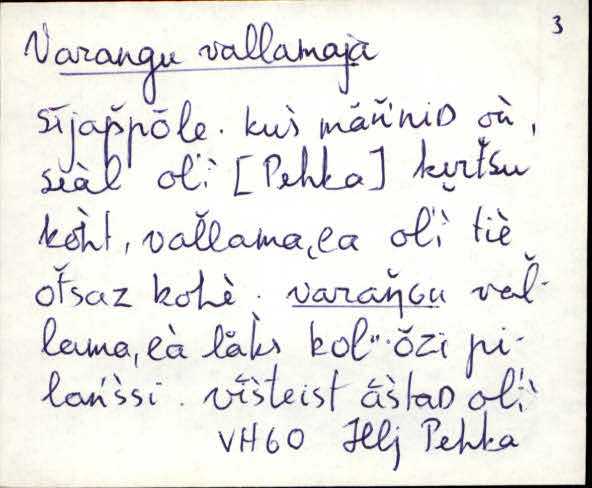 3
Varangu vallamaja
sījap̆pōle. kus̀ mäň'niD oǹ,
seàl ol'ì [Pehka] kɤrt̆su
kòht, val̆lama,ea ol'ì tiè
ot̆saz kohè. varaŋ̆Gu val̆-
lama,eà läk̆s kol"ŏzi pi-
lan's̀si. vīs̀teist ās̀taD ol'ì
VH60 Hlj Pehka